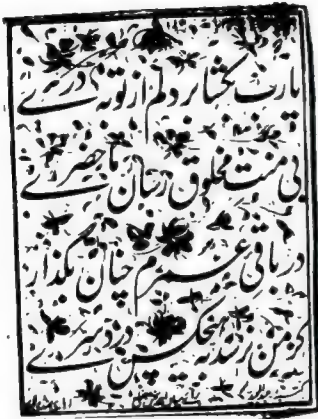 یارب بگشا بر دلم از توبه دری
بی منت مخلوق رسان ماحضری
در باقی عمرم چنان بگذار
کز من نرسد بهیچکس دردسری